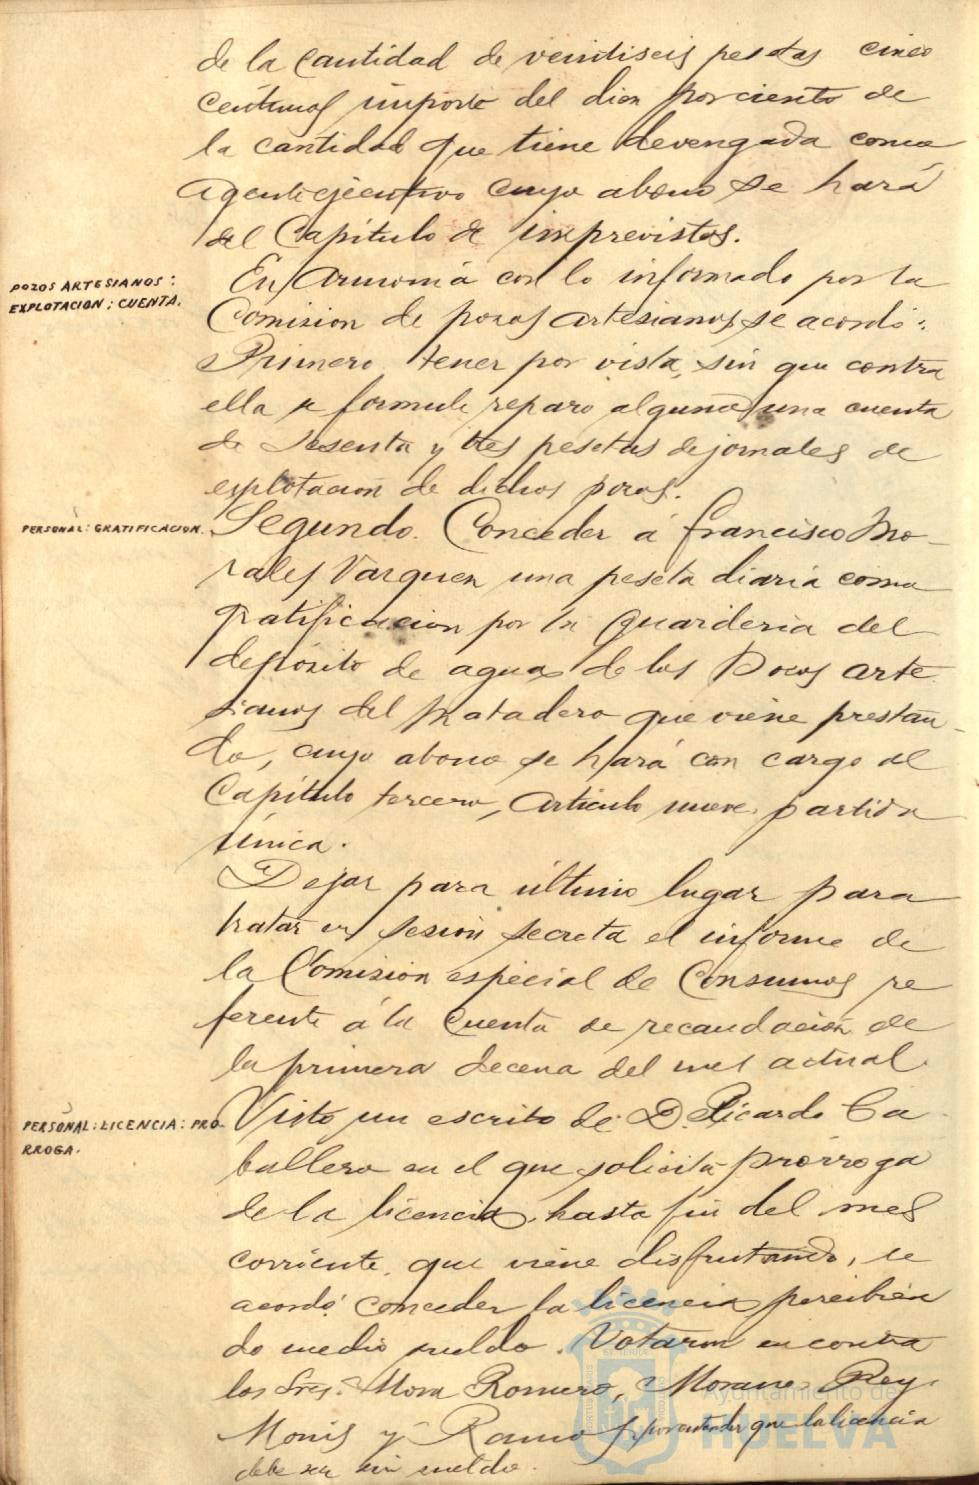 de la cantidad de veintiseis pesetas cinco
centimos importe del diez por ciento de
la cantidad que tiene devengada como
Agente ejecutivo cuyo abono se hará
del Capítulo de imprevistos.
POZOS ARTESIANOS:
EXPLOTACION; CUENTA.
En armonia con lo informado por la
Comision de pozos artesianos, se acordó:
Primero tener por vista, sin que contra
ella se formule reparo alguno, una cuenta
de sesenta y tres pesetas de jornales de
esplotacion de dichos pozos.
PERSONAL: GRATIFICACION.
Segundo. Conceder á Francisco Mo-
rales Varquen una peseta diaria como
gratificacion por la guarderia del
depósito de aguas de los Pozos arte
sianos del Matadero que viene prestan-
do, cuyo abono se hará con cargo al
Capítulo tercero, Articulo nueve, partida
única.
Dejar para último lugar para
tratar en sesión secreta el informe de
la Comisión especial de Consumos re
ferente á la cuenta de recaudación de
la primera decena del mes actual.
PERSONAL: LICENCIA: PRÓ-
RROGA.
Visto un escrito de D. Ricardo Ca
ballero en el que solicita prórroga
de la licencia, hasta fin del mes
corriente, que viene disfrutando, se
acordó conceder la licencia percibien
do medio sueldo. Votaron en contra
los Sres. Mora Romero, Moreno, Rey,
Monis y Ramos, por entender que la licencia
debe ser sin sueldo.
Ayuntamiento de
HUELVA